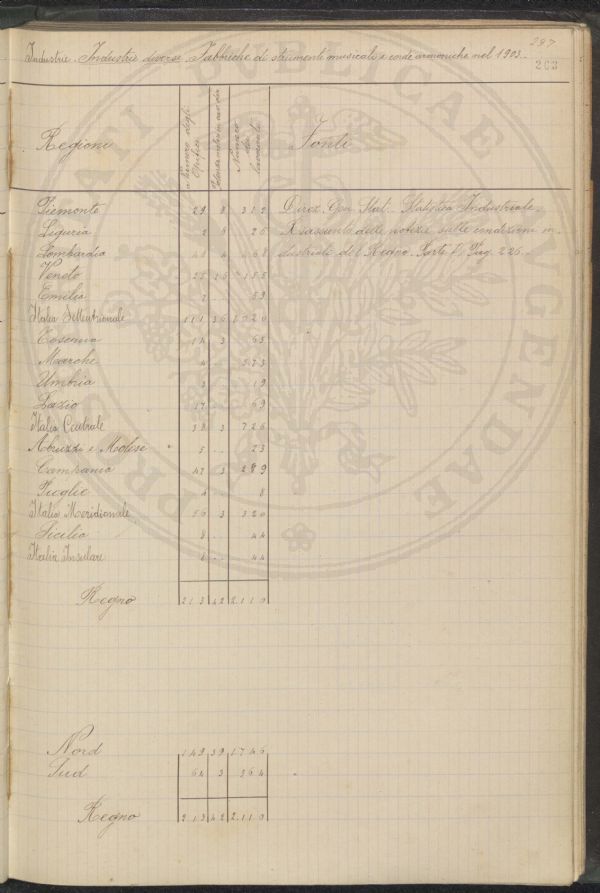 297
Industrie. Industrie diverse. Fabbriche di strumenti musicali e corde armoniche nel 1903.
Regioni Numero degli Opifici Numero dei lavoranti Fonti
Piemonte 29 8 312 Direz. Gen. Stat. Statistica Industriale.
Liguria 2 8 26 Riassunto delle notizie sulle condizioni in-
Lombardia 48 4 468 dustriali del Regno. Parte V, Pag. 226.
Veneto 25 16 155
Emilia 7 .. 59
Italia Settentrionale 111 36 1020
Toscana 14 3 65
Marche 4 .. 573
Umbria 3 .. 19
Lazio 17 .. 69
Italia Centrale 38 3 726
Abruzzi e Molise 5 .. 23
Campania 47 3 289
Puglie 4 .. 8
Italia Meridionale 56 3 320
Sicilia 8 .. 44
Italia Insulare 8 .. 44
Regno 213 42 2.110
Nord 149 39 1746
Sud 64 3 364
Regno 213 42 2.110